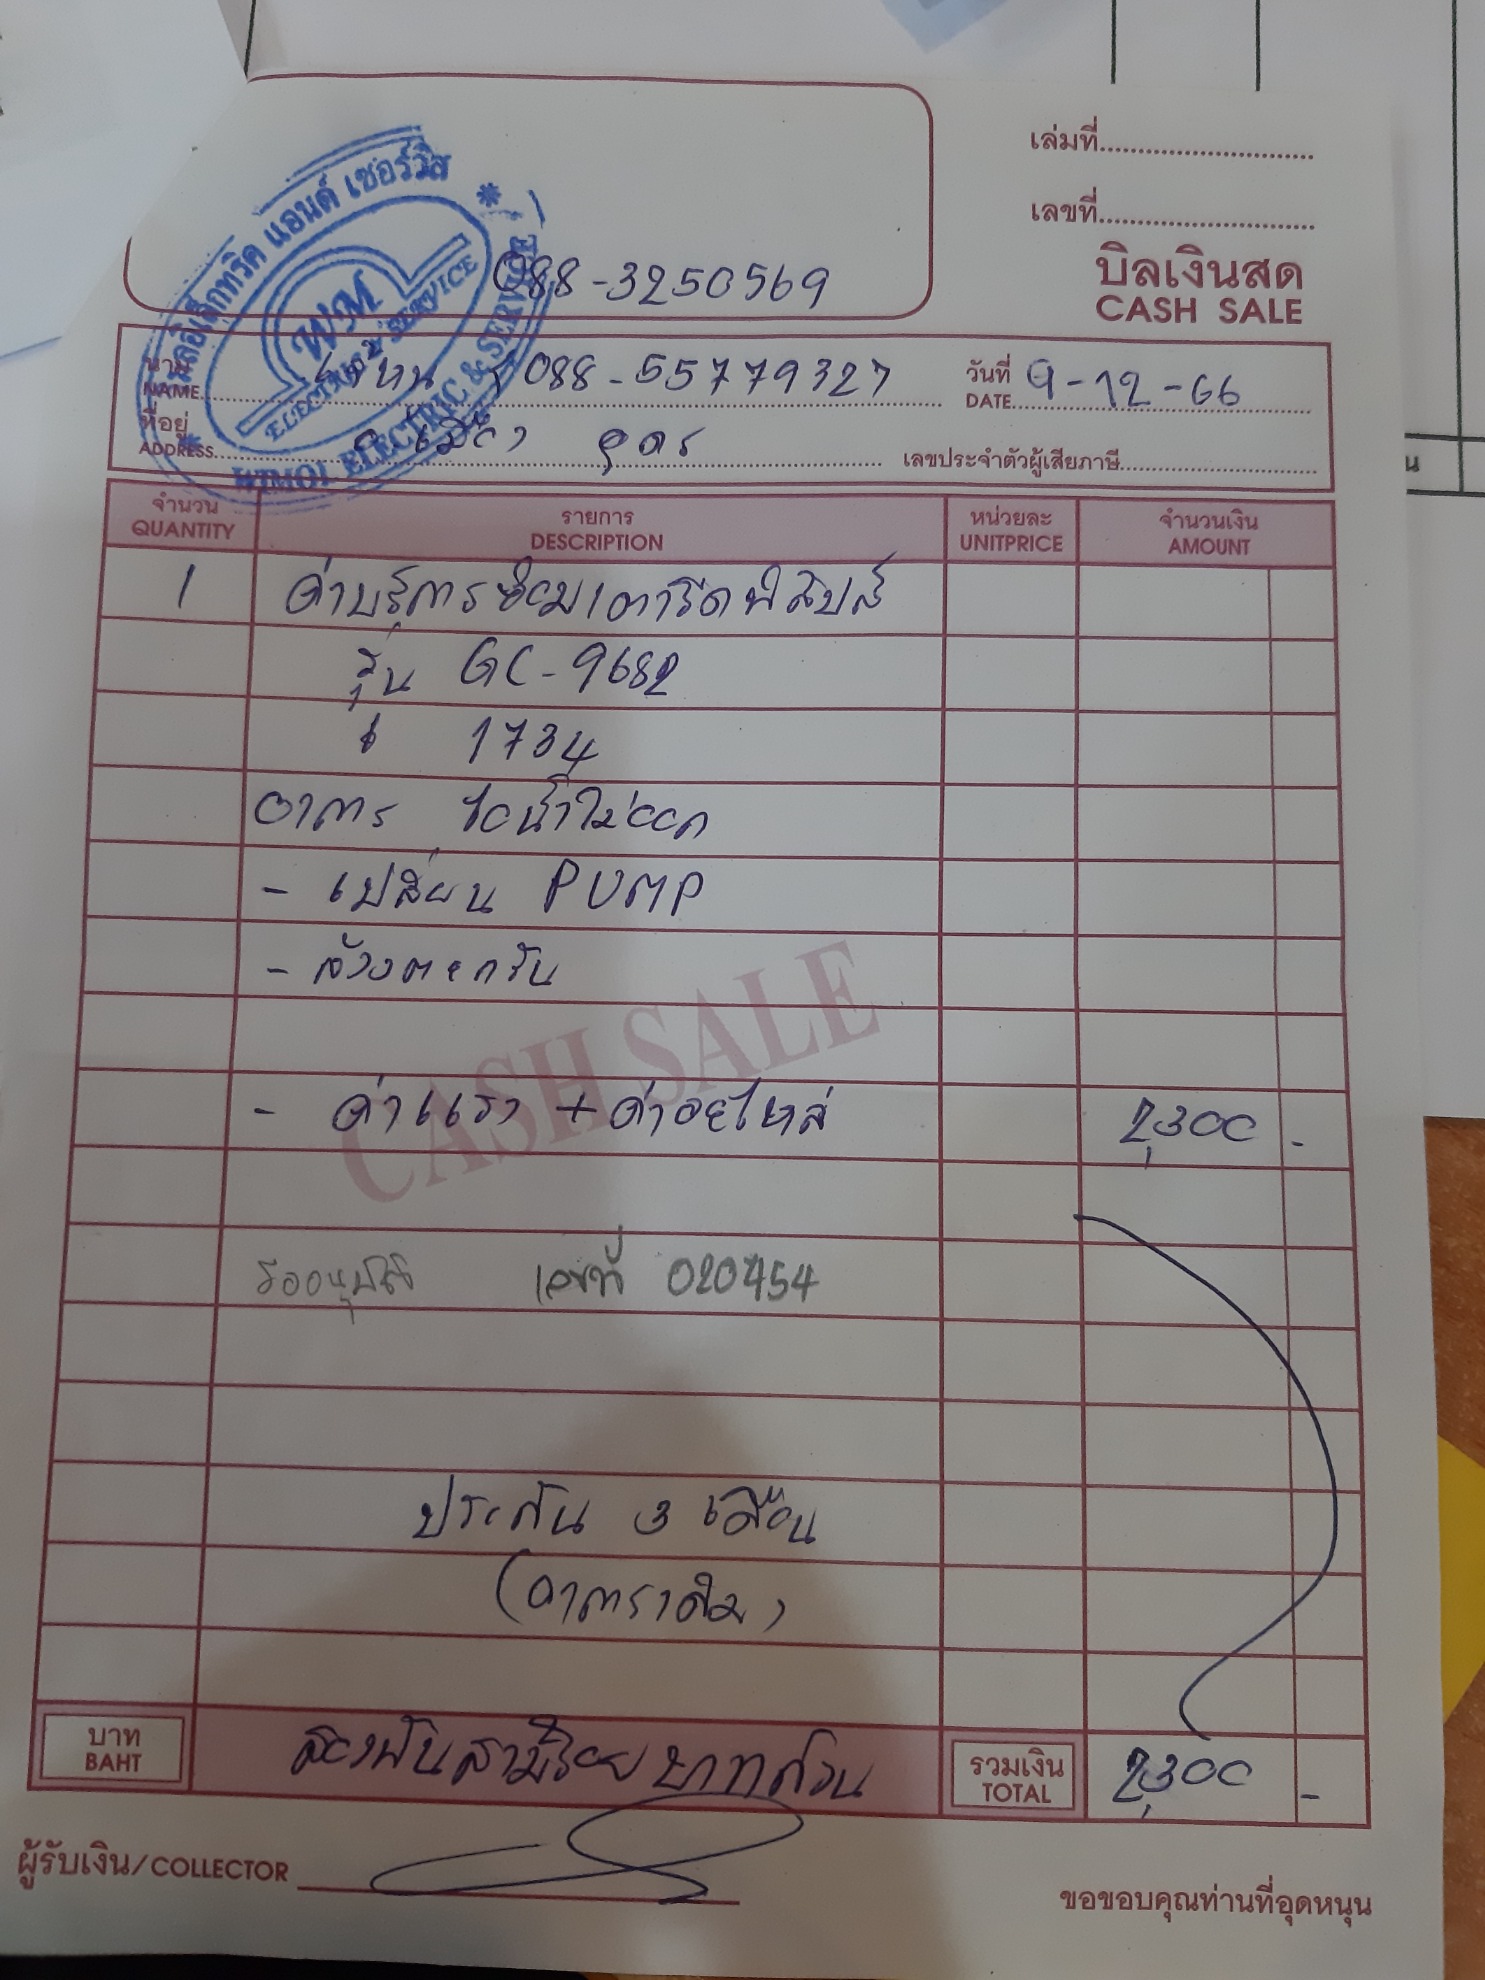 เล่มที่
เลขที่
บิลเงินสด
CASH SALE
อิเล็กทริค แอนด์ เซอร์วิส
WM
ELECTRIC & SERVICE
WIMOL ELECTRIC & SERVICE
088-3250569
นาม
NAME 088-55779327
วันที่
DATE 9-12-66
ที่อยู่
ADDRESS อ.เมือง อุดร
เลขประจำตัวผู้เสียภาษี
จำนวน รายการ หน่วยละ จำนวนเงิน
QUANTITY DESCRIPTION UNITPRICE AMOUNT
1 ค่าบริการซ่อมเตารีดฟิลิปส์
รุ่น GC-9682
1734
อาการ ไอน้ำไม่ออก
- เปลี่ยน PUMP
- ล้างตะกรัน
CASH SALE
- ค่าแรง + ค่าอะไหล่ 2,300 -
รออนุมัติ เลขที่ 020754
ประกัน 3 เดือน
(อาการเดิม)
บาท
BAHT
สองพันสามร้อยบาทถ้วน
รวมเงิน
TOTAL
2,300 -
ผู้รับเงิน/COLLECTOR
ขอขอบคุณท่านที่อุดหนุน